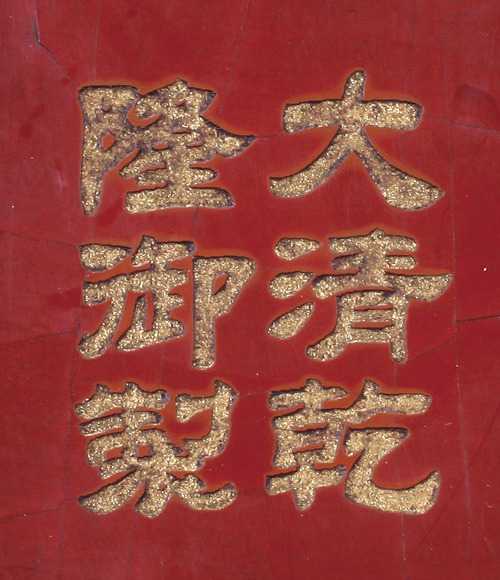 大清乾
隆御製